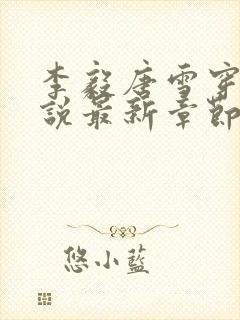 李毅唐雪穿
說最新章節
悠小藍